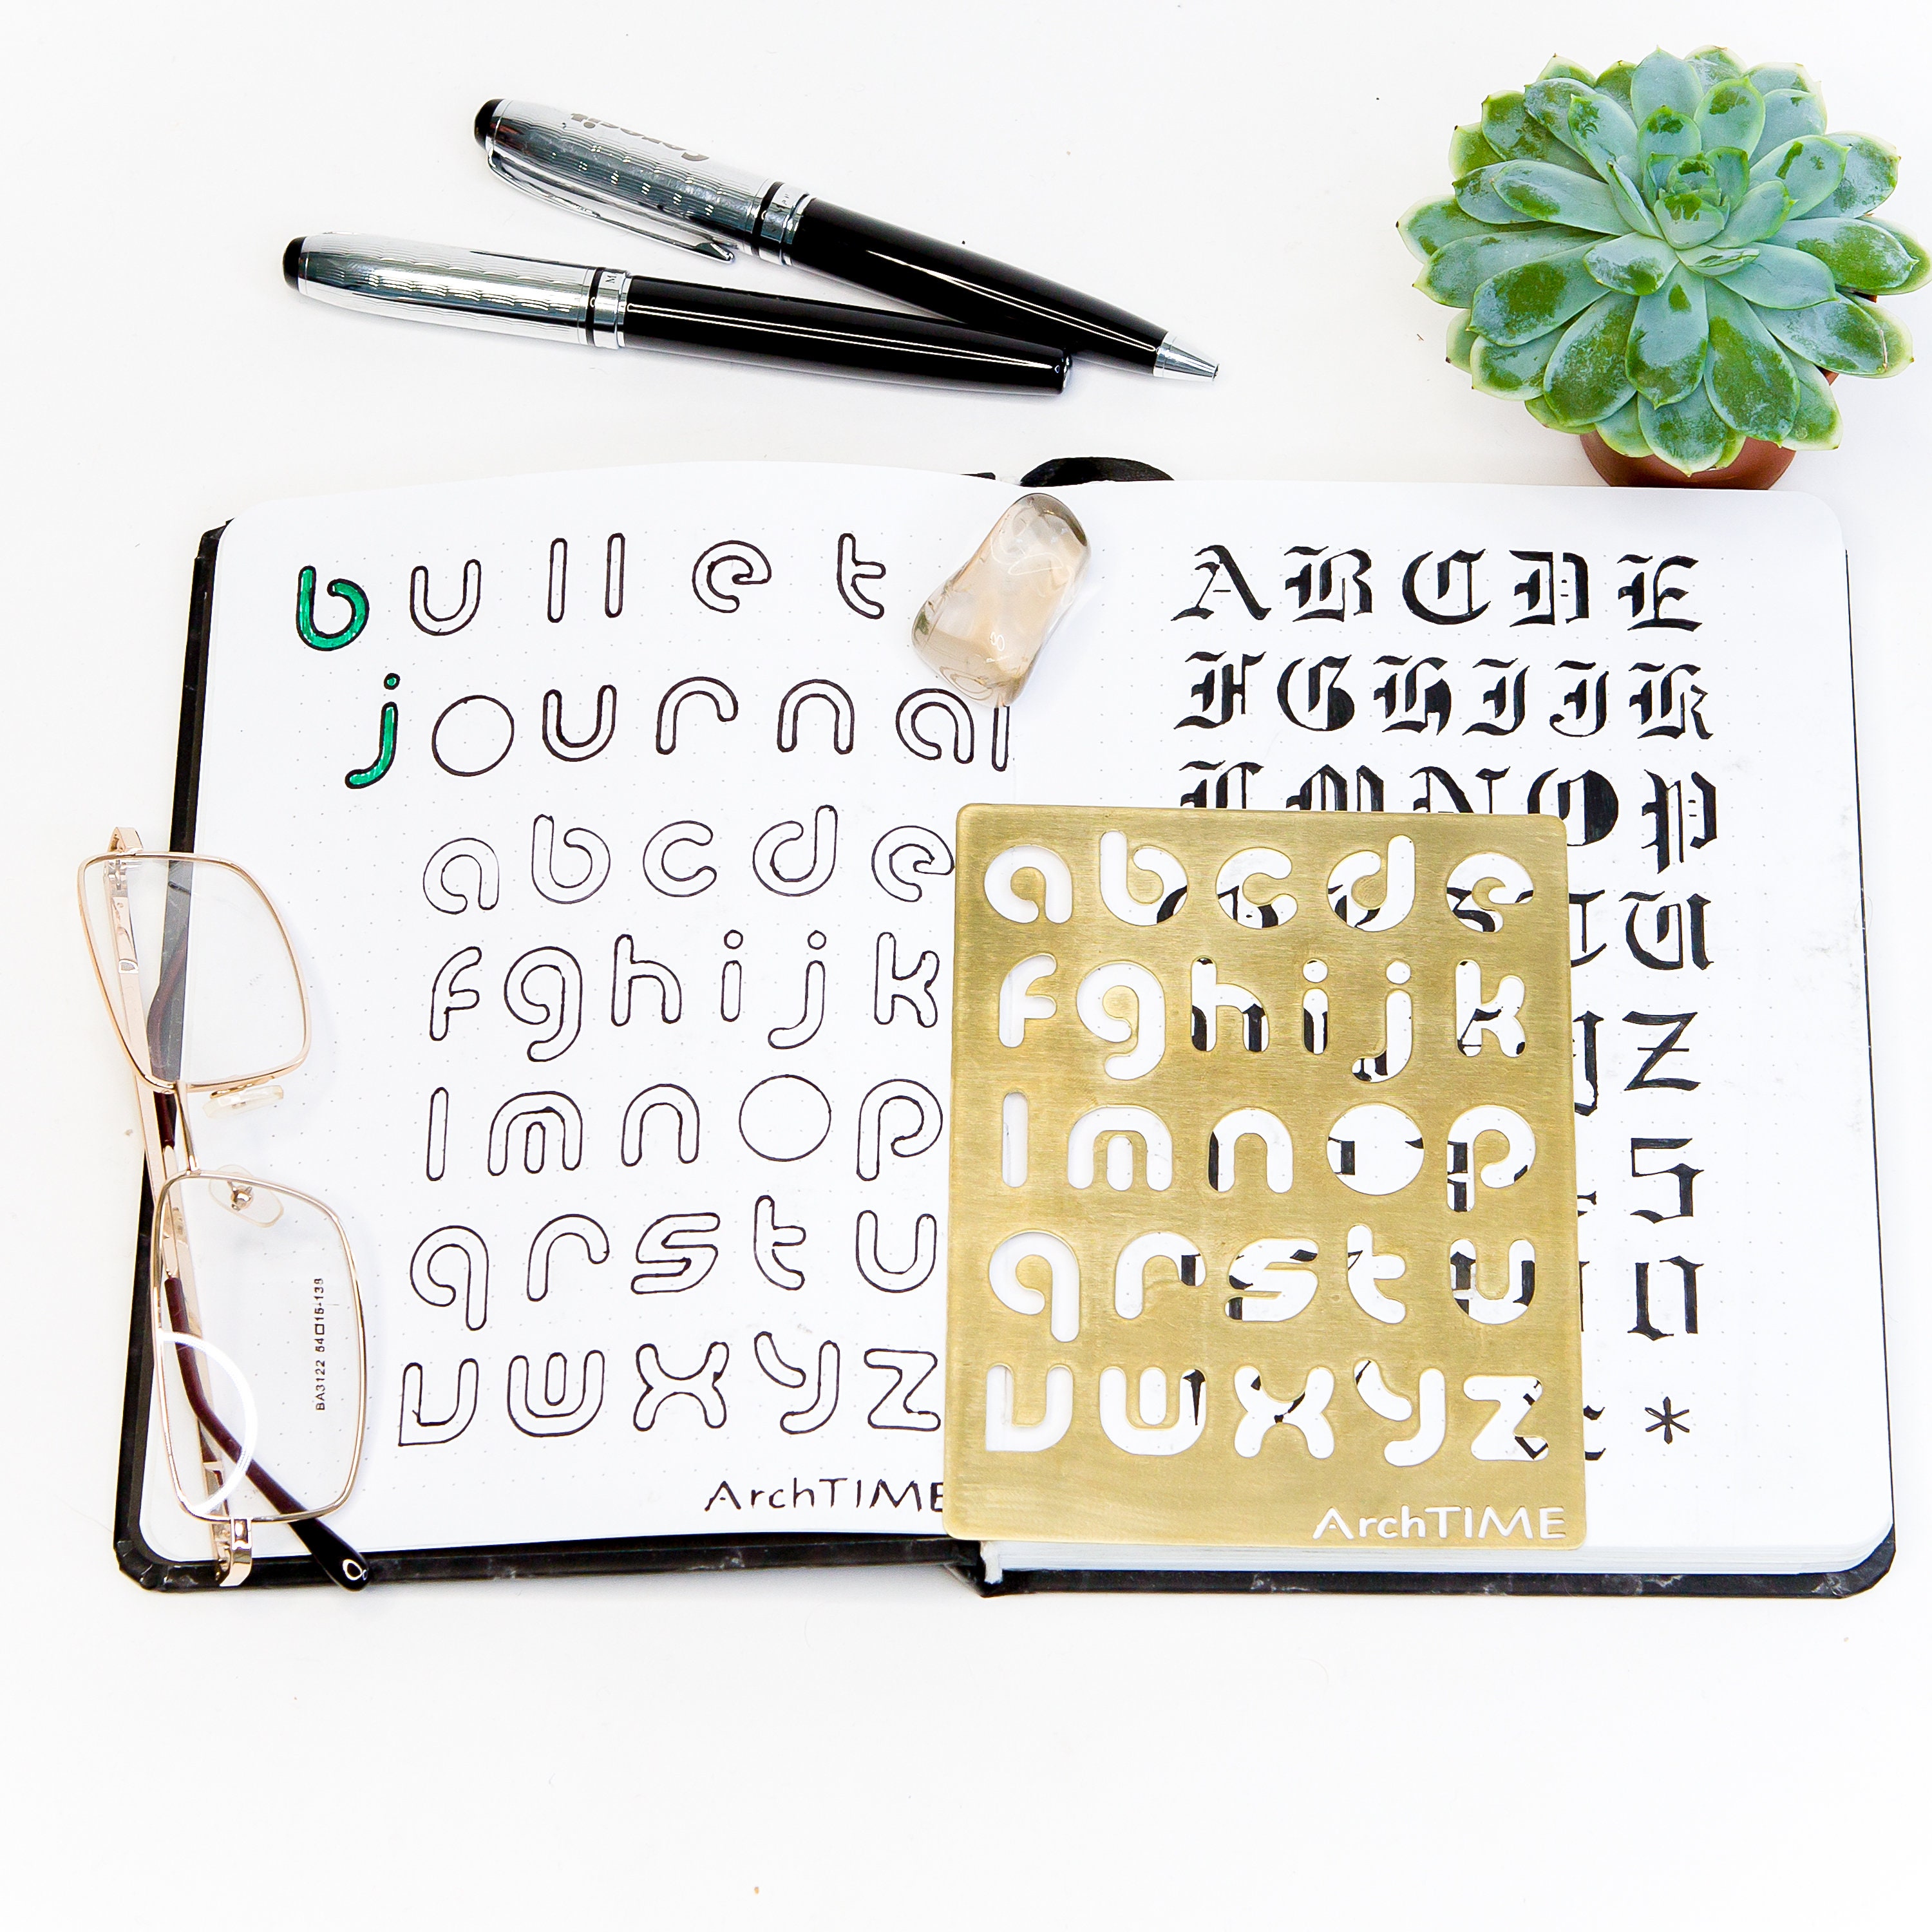 bullet
journal
a b c d e
f g h i j k
l m n o p
q r s t u
v w x y z
ArchTIME
A B C D E
F G H I J K
L M N O P
U
Z
5
*
a b c d e
f g h i j k
l m n o p
q r s t u
v w x y z
ArchTIME
BA3122 54□15-138